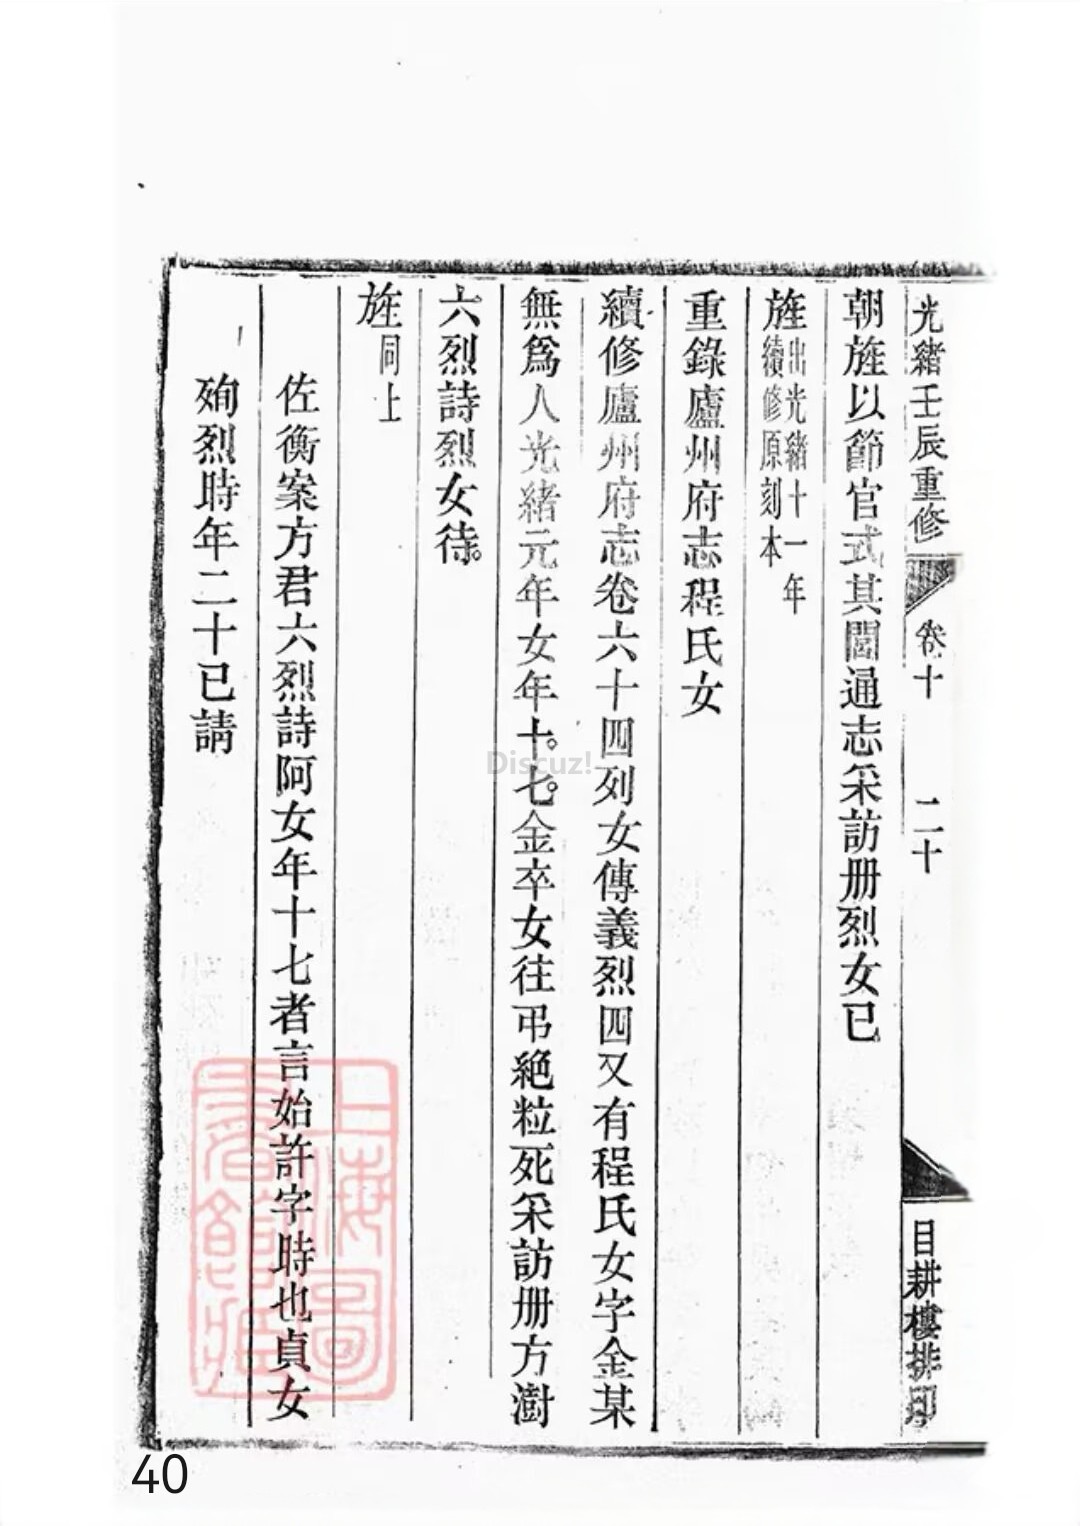 光緒壬辰重修
卷十
二十
目耕樓排印
朝旌以節官式其閭通志采訪册烈女已
旌出光緒十一年
續修原刻本
重錄廬州府志程氏女
續修廬州府志卷六十四列女傳義烈四又有程氏女字金某
無爲人光緒元年女年十。七。金卒女往弔絶粒死采訪册方澍
六烈詩烈女待。
旌同上
佐衡案方君六烈詩阿女年十七者言始許字時也貞女
殉烈時年二十已請
上海圖
書館藏
Discuz!
40